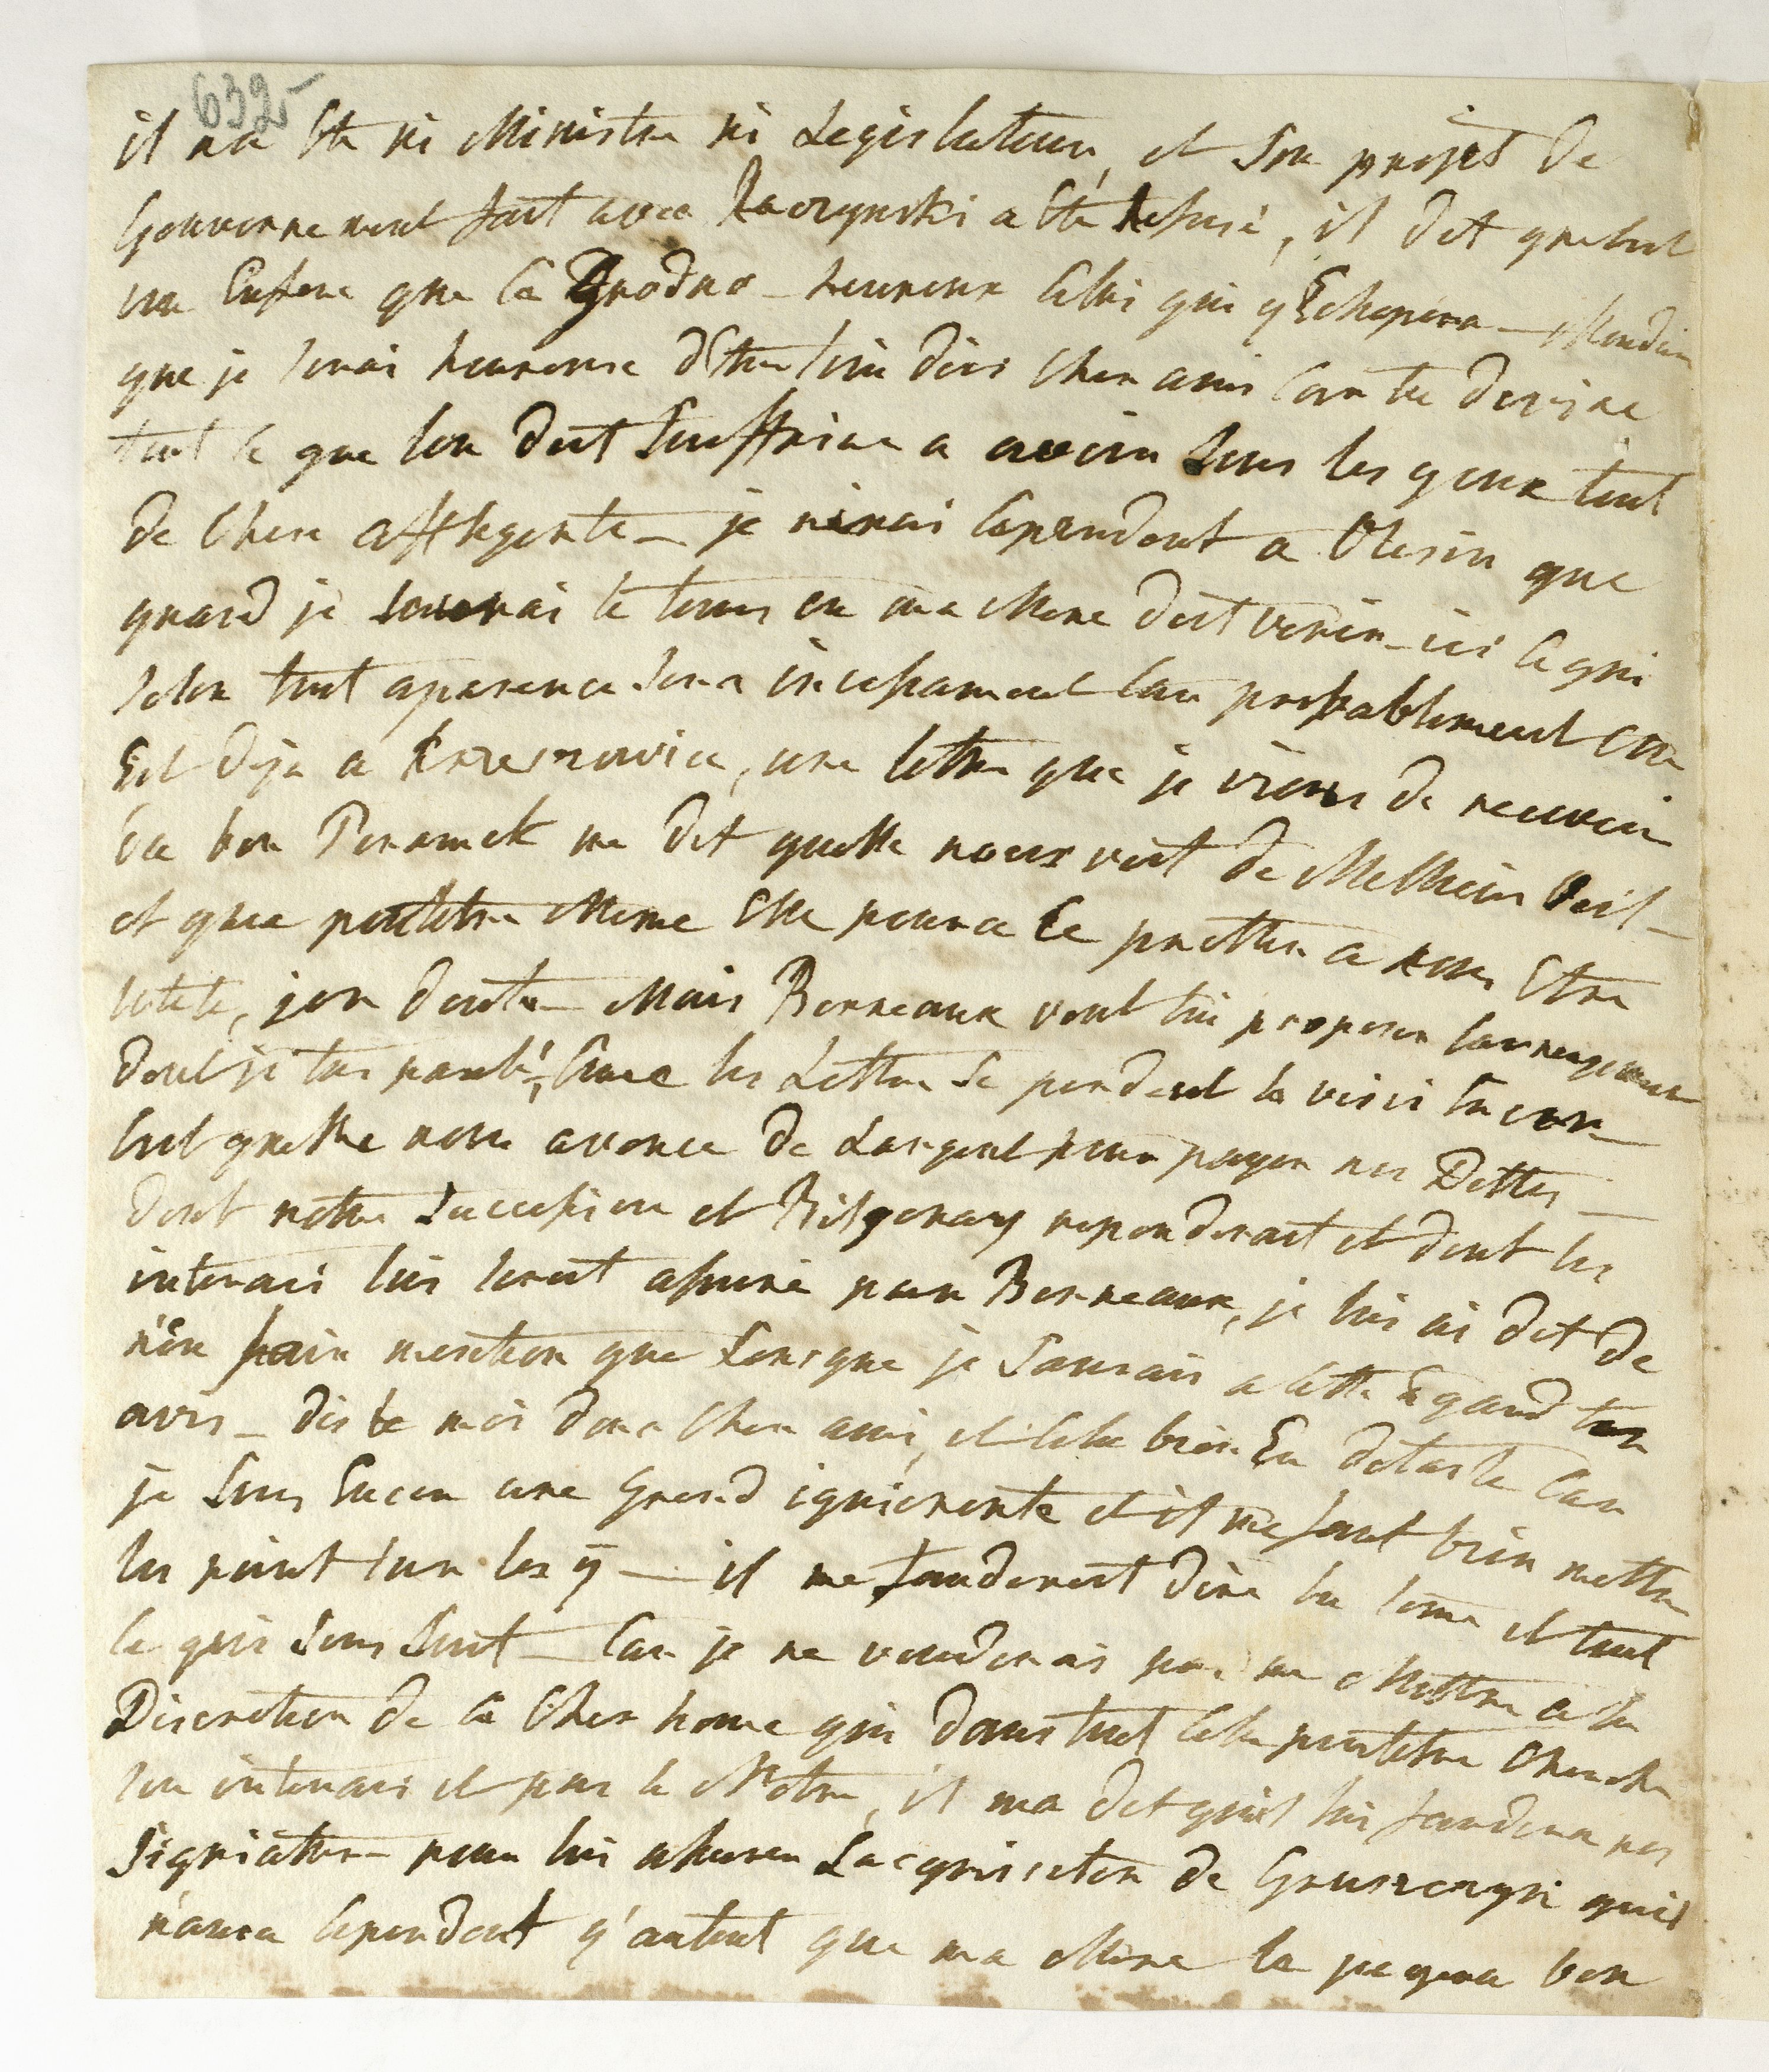 632
il na Ete ni Ministre ni Legislateur, et Son projet de
Gouvernement fait avec Raczynski a Eté Refusé, il dit que cest
un Enfere que Ce Grodno - heureux Celui qui y Echapera - 
que je serai heureuse dEtre loin dici Cher ami Car tu devine
tout ce que lon doit Souffrire a avoir Sous les yeux tout
de Chose affligente - je nirai Cependant a Olesin que
quand je Saurai le tems ou ma Mere doit venir ici Ce qui
selon tout aparence sera incessament Car probablement Elle
Est deja a Krzeszowice, une lettre que je viens de recevoir
du bon me dit quelle nous veut de Melheur Oeil -
et que peutetre Meme Elle poura Se pretter a nous Etre
utile, jen doute - Mais Bonneaux veut lui proposer larrangement
dont je tai parlé, Come les Lettre Se perdent le voici Encore
Cest quelle nous avance de Largent pour payer nos Dettes -
dont notre Succession et Bilgoray reponderait et dont les
interais lui serait assuré par Bonneaux, je lui ai dit de
n'en fair mention que Lorsque je Saurais a cette Egard ton
avis - dis le moi donc Cher ami, et Cela bien En detaile Car
je Suis Encor une Grand igniorente et il me faut bien mettre
les point sur les ÿ - il me faudrait dire la some et tout
ce qui Sans Suit - Car je ne vouderais pas me Mettre a la
Discretion de Ce Cher home qui dans tout Cela peutetre Cherche
son interais et pas le Notre, il ma dit quil lui faudera nos
Signiature pour lui assurer Lacquisition de quil
n'aura Cependant q'autent que ma Mere le jugera bon